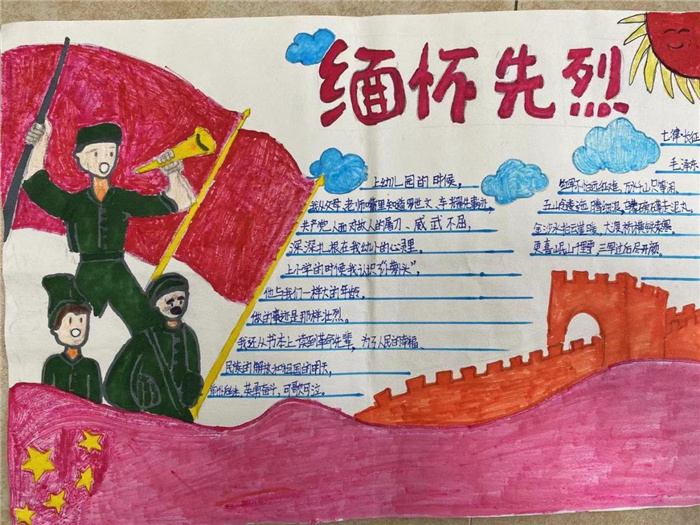 缅怀先烈
上幼儿园的时候,
我从父辈、老师嘴里知道
共产党人面对敌人的屠刀、威武不屈,
深深扎根在我幼小的心灵。
上小学的时候我认识“小萝卜头”,
他与我们一样大的年龄,
他的事迹是那样壮烈。
我还从书本上读到革命先辈,为了人民的幸福、
民族的解放和祖国的明天,
英勇奋斗,可歌可泣。
七律·长征
毛泽东
红军不怕远征难,万水千山只等闲。
五岭逶迤腾细浪,乌蒙磅礴走泥丸。
金沙水拍云崖暖,大渡桥横铁索寒。
更喜岷山千里雪,三军过后尽开颜。